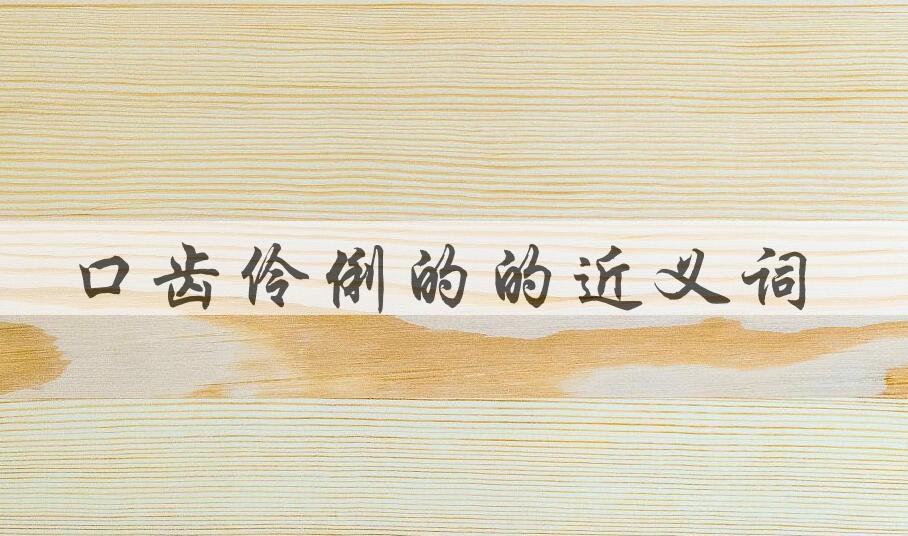 口齿伶俐的的近义词